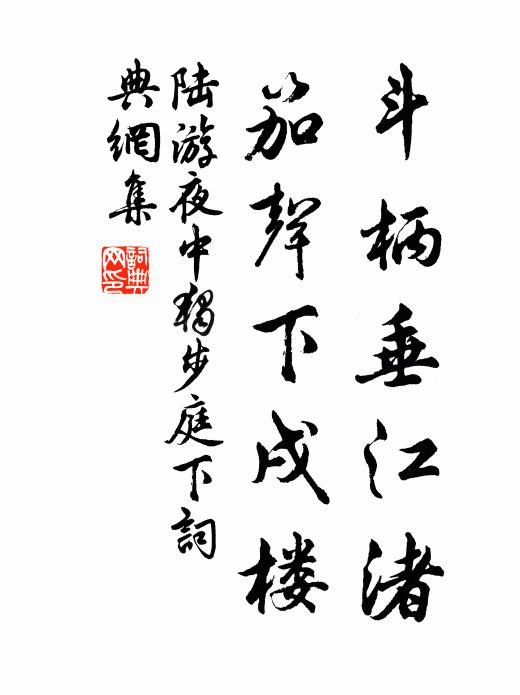 斗柄垂江渚
笳聲下戍楼
陆游夜中獨步庭下詞
典網集
詞典网印